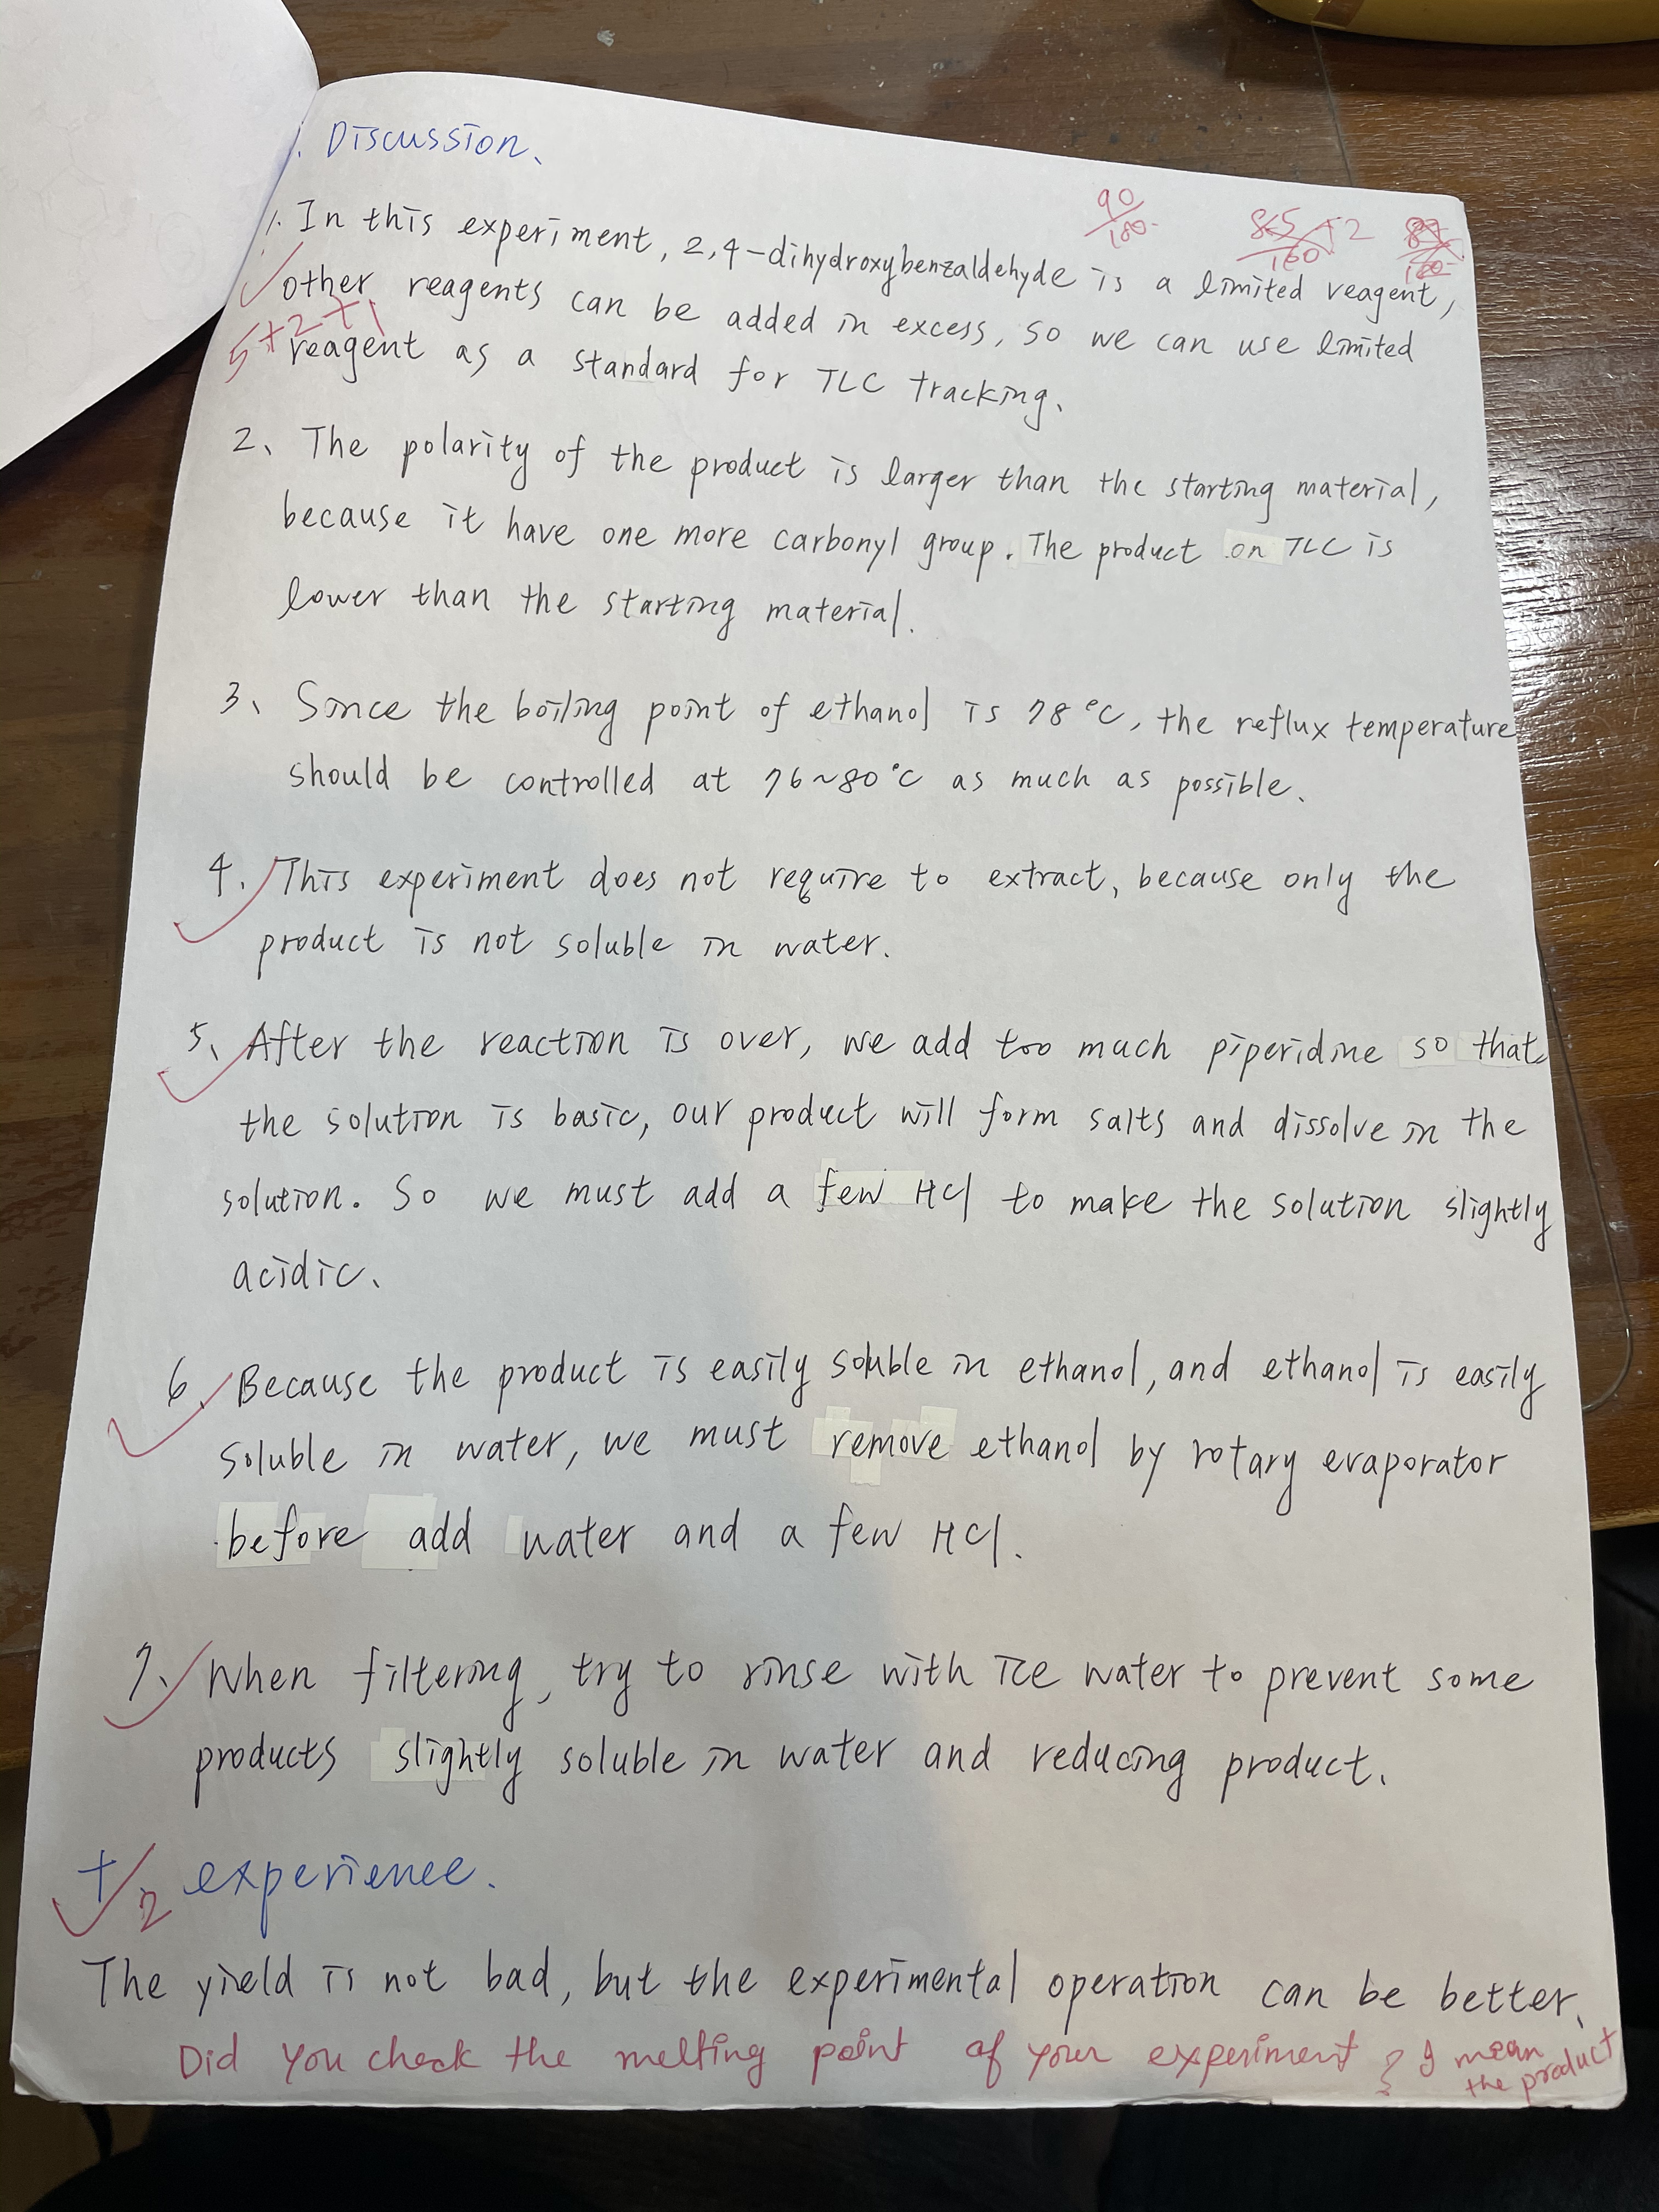 Discussion.
90/100
85/100 +2
1. In this experiment, 2,4-dihydroxybenzaldehyde is a limited reagent,
other reagents can be added in excess, so we can use limited
5+2+1
reagent as a standard for TLC tracking.
2. The polarity of the product is larger than the starting material,
because it have one more carbonyl group. The product on TLC is
lower than the starting material.
3. Since the boiling point of ethanol is 78°C, the reflux temperature
should be controlled at 76~80°C as much as possible.
4. This experiment does not require to extract, because only the
product is not soluble in water.
5. After the reaction is over, we add too much piperidine so that
the solution is basic, our product will form salts and dissolve in the
solution. So we must add a few HCl to make the solution slightly
acidic.
6. Because the product is easily soluble in ethanol, and ethanol is easily
soluble in water, we must remove ethanol by rotary evaporator
before add water and a few HCl.
7. When filtering, try to rinse with ice water to prevent some
products slightly soluble in water and reducing product.
2 experience.
The yield is not bad, but the experimental operation can be better.
Did you check the melting point of your experiment ? I mean
the product